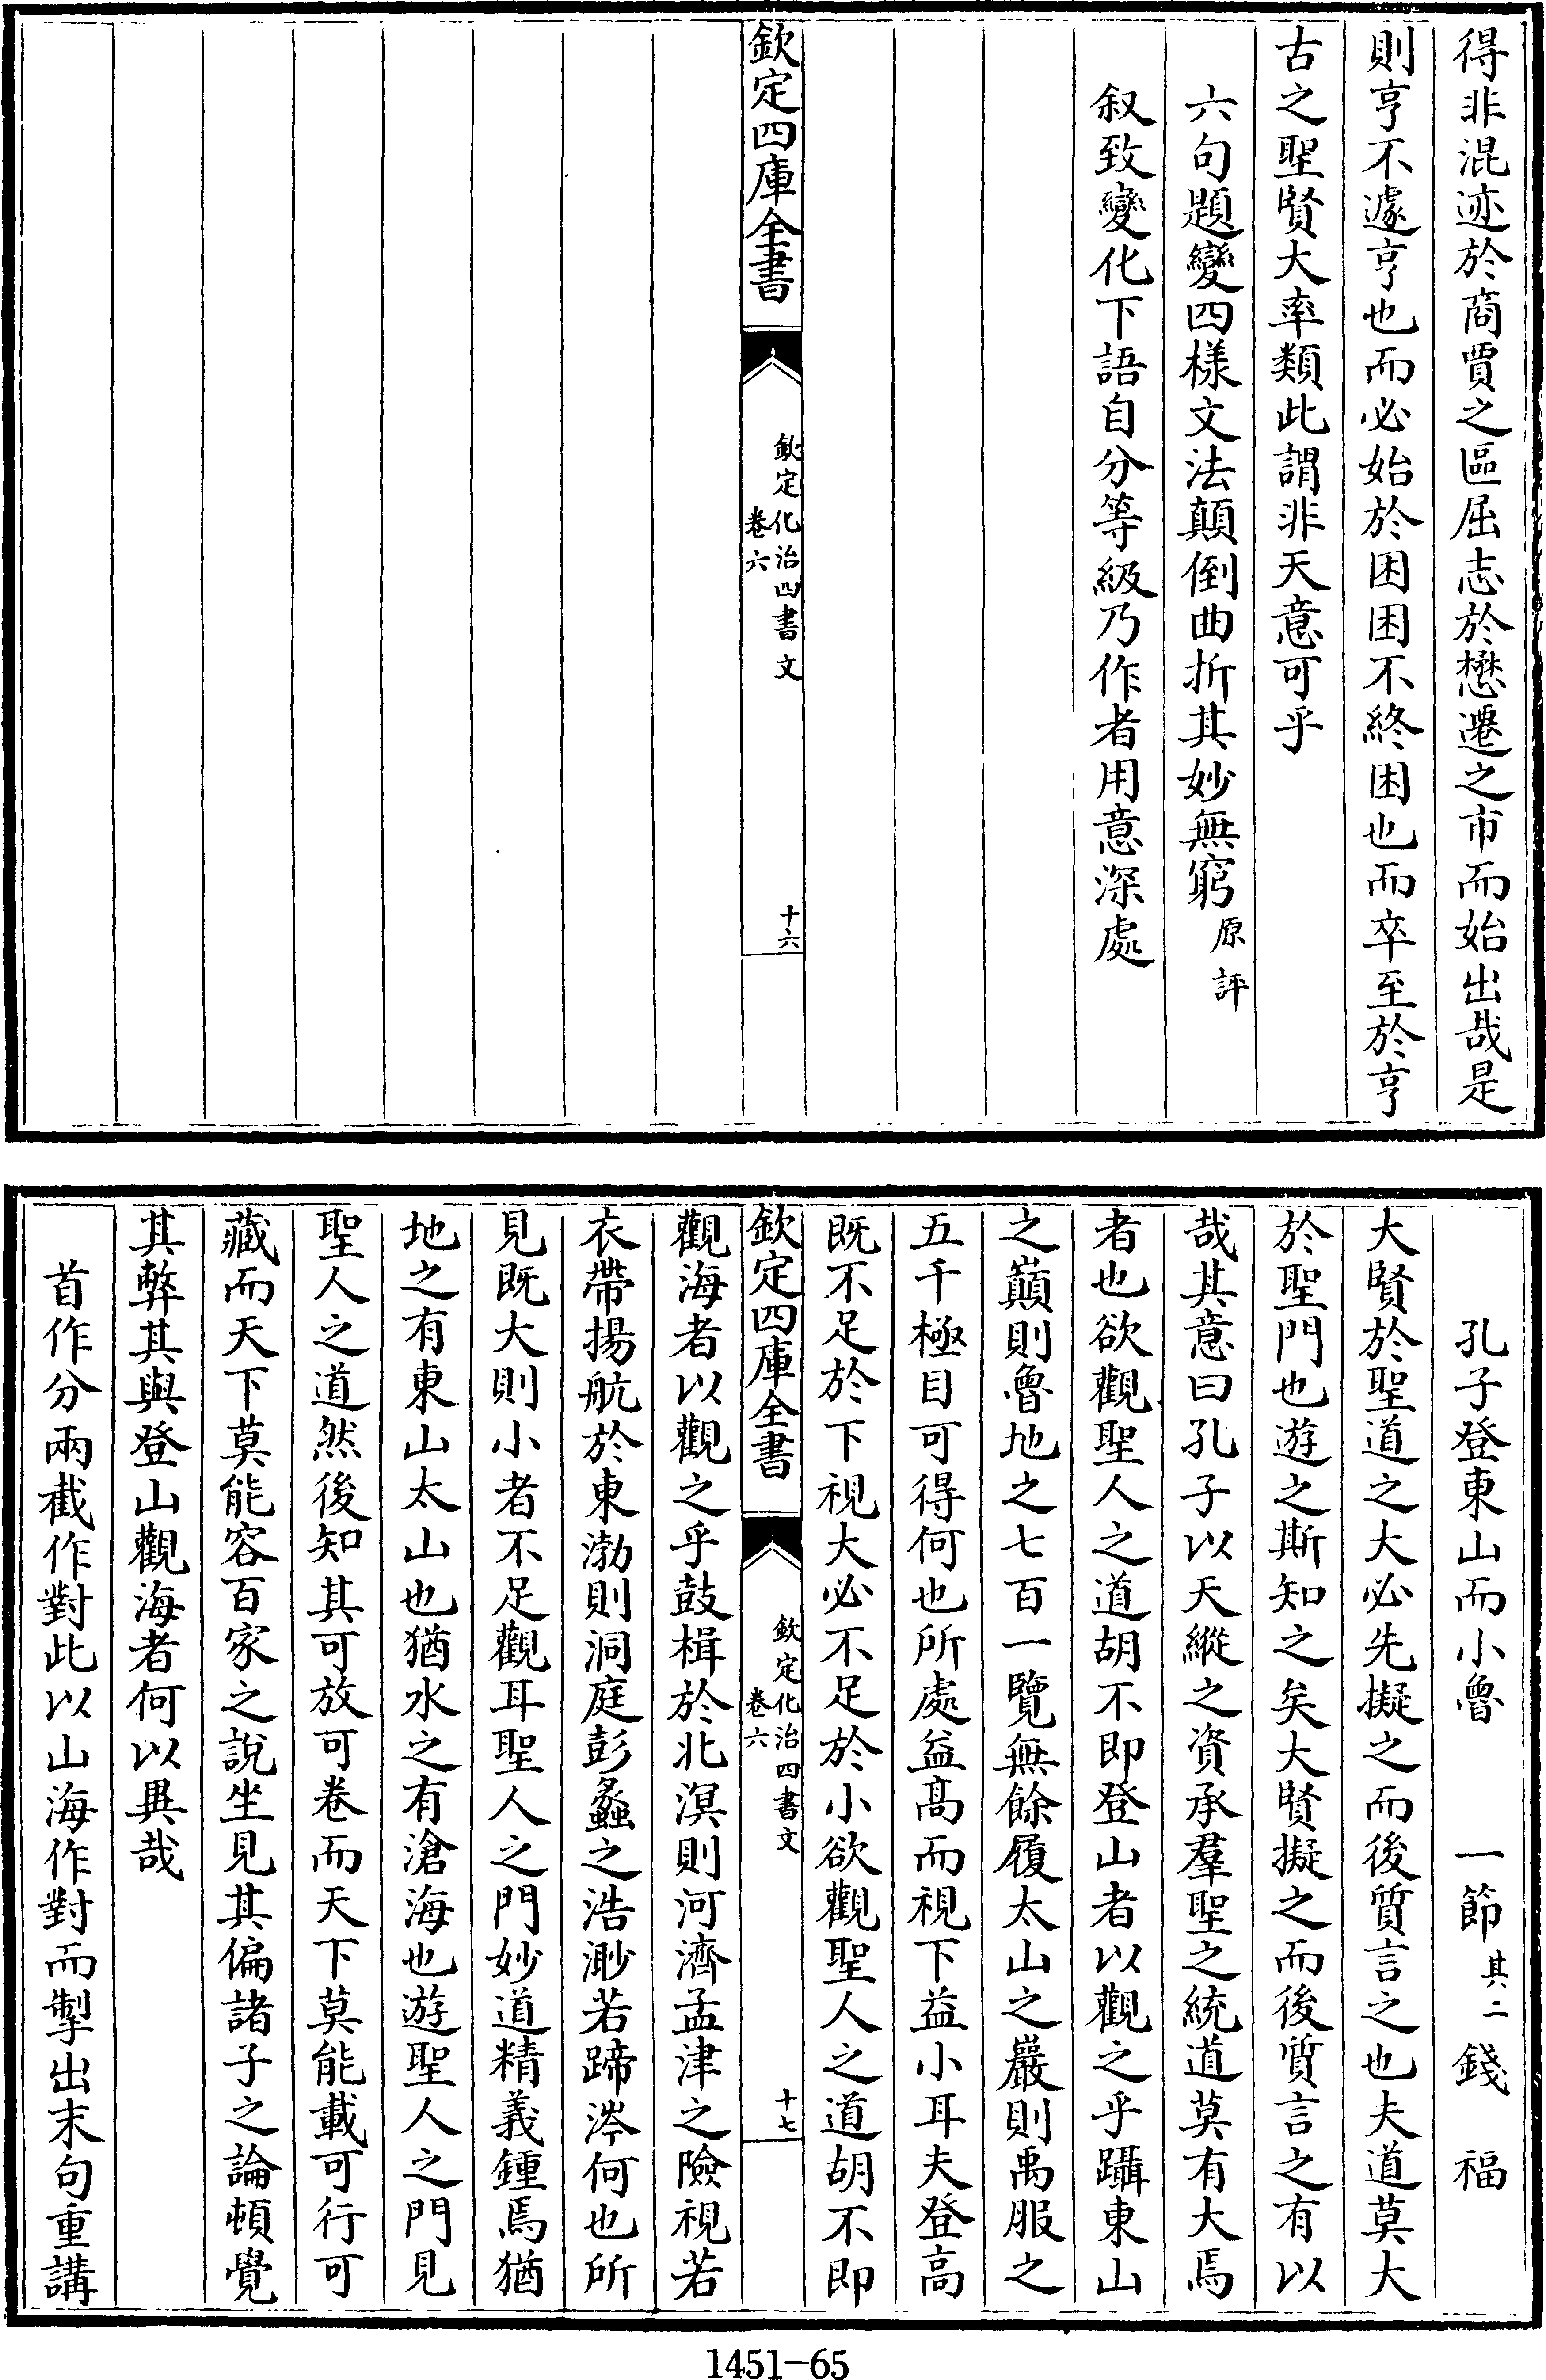 得非混迹於商賈之區屈志於懋遷之市而始出哉是
則亨不遽亨也而必始於困困不終困也而卒至於亨
古之聖賢大率類此謂非天意可乎
六句題變四樣文法顛倒曲折其妙無窮原評
叙致變化下語自分等級乃作者用意深處
欽定四庫全書
欽定化治四書文
卷六
十六
孔子登東山而小魯 一節其二 錢福
大賢於聖道之大必先擬之而後質言之也夫道莫大
於聖門也遊之斯知之矣大賢擬之而後質言之有以
哉其意曰孔子以天縱之資承羣聖之統道莫有大焉
者也欲觀聖人之道胡不即登山者以觀之乎躡東山
之巔則魯地之七百一覽無餘履太山之巖則禹服之
五千極目可得何也所處益高而視下益小耳夫登高
既不足於下視大必不足於小欲觀聖人之道胡不即
欽定四庫全書
欽定化治四書文
卷六
十七
觀海者以觀之乎鼓楫於北溟則河濟孟津之險視若
衣帶揚航於東渤則洞庭彭蠡之浩渺若蹄涔何也所
見既大則小者不足觀耳聖人之門妙道精義鍾焉猶
地之有東山太山也猶水之有滄海也遊聖人之門見
聖人之道然後知其可放可卷而天下莫能載可行可
藏而天下莫能容百家之說坐見其偏諸子之論頓覺
其弊其與登山觀海者何以異哉
首作分兩截作對此以山海作對而掣出末句重講
1451-65